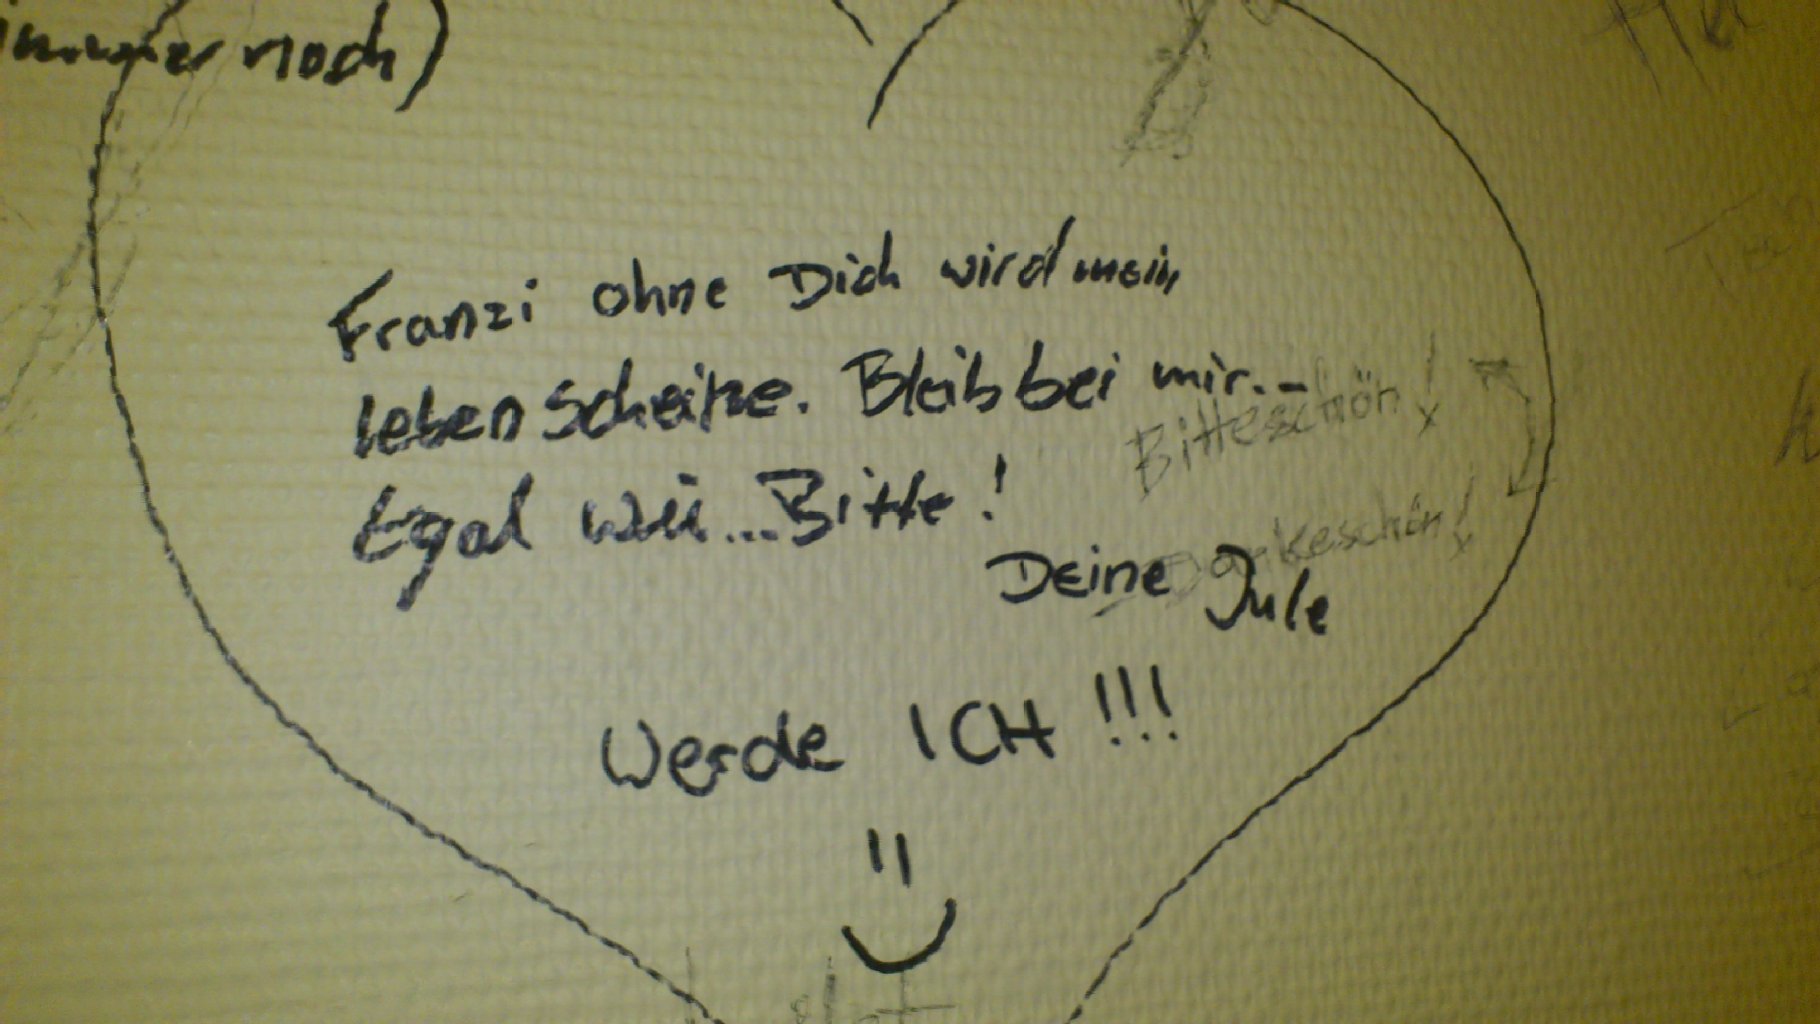 immer noch)
Franzi ohne Dich wird mein
leben Scheiße. Bleib bei mir..
Bitteschön!
Egal wie...Bitte!
Dankeschön!
Deine Jule
Werde ICH!!!